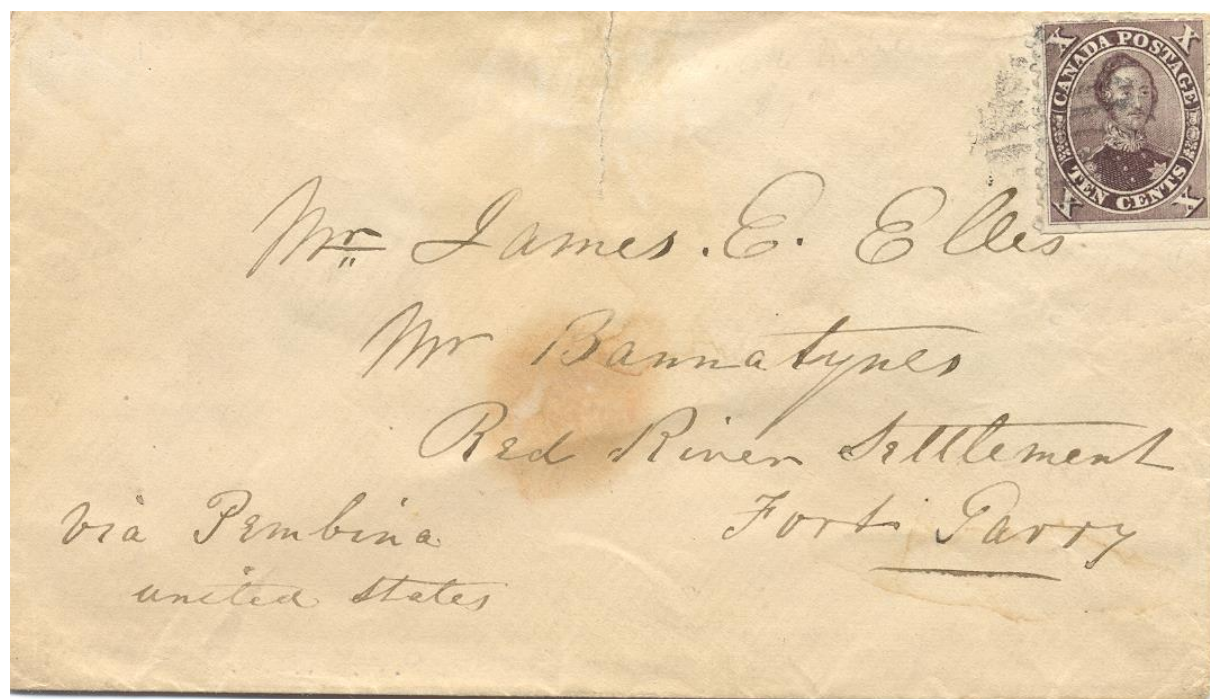 X CANADA POSTAGE X
TEN CENTS
X X
Mr. James. E. Elles
Mr Bannatynes
Red River Settlement
Fort Garry
via Pembina
united states